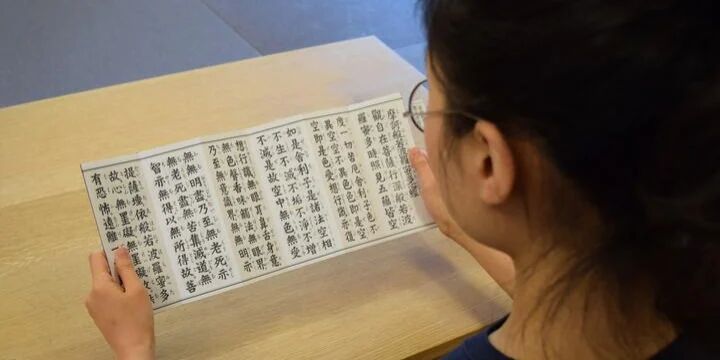 摩訶般若波羅蜜
觀自在菩薩行深般若波
羅蜜多時照見五蘊皆空
度一切苦厄舍利子色不
異空空不異色色即是空
空即是色受想行識亦復
如是舍利子是諸法空相
不生不滅不垢不淨不增
不減是故空中無色無受
想行識無眼耳鼻舌身意
無色聲香味觸法無眼界
乃至無意識界無無明亦
無無明盡乃至無老死亦
無老死盡無苦集滅道無
智亦無得以無所得故菩
提薩埵依般若波羅蜜多
故心無罣礙無罣礙故無
有恐怖遠離